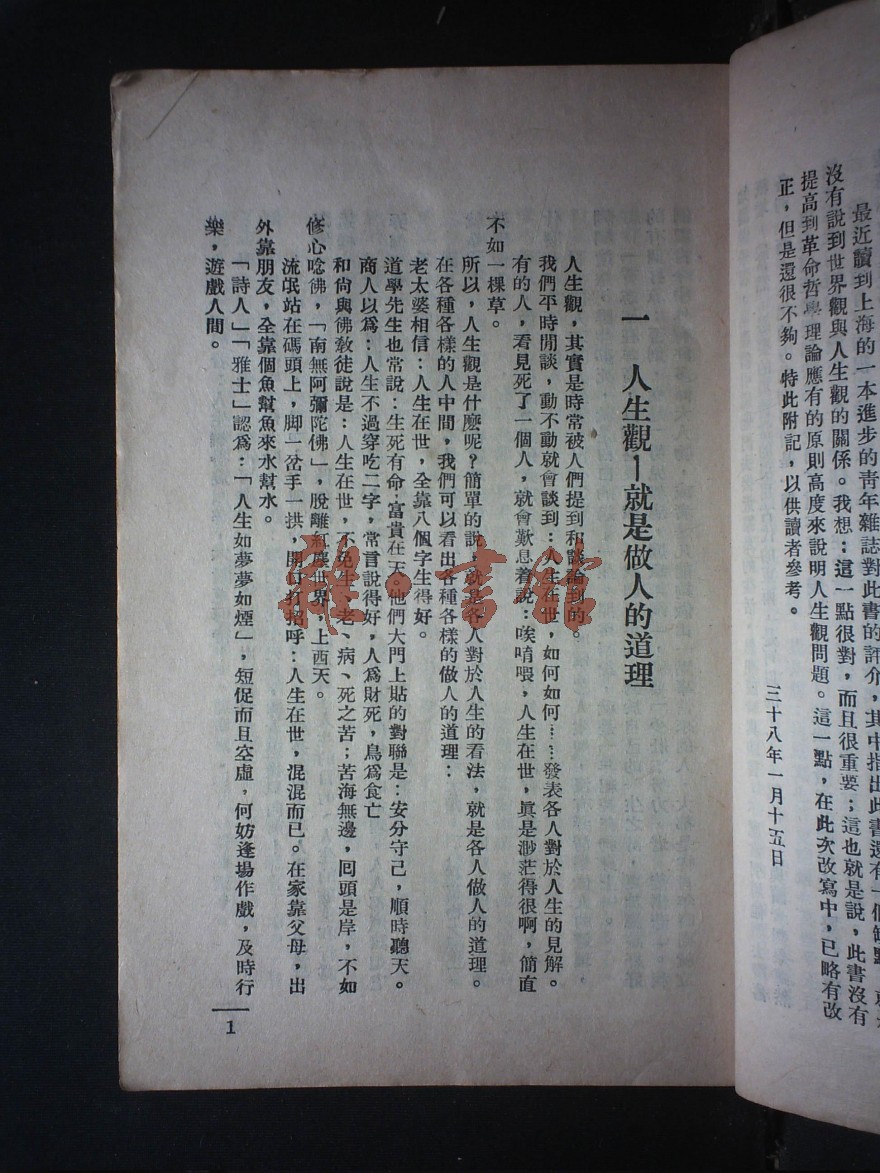 最近讀到上海的一本進步的青年雜誌對此書的評介，其中指出此書還有一個缺點，就是
沒有說到世界觀與人生觀的關係。我想：這一點很對，而且很重要；這也就是說，此書沒有
提高到革命哲學理論應有的原則高度來說明人生觀問題。這一點，在此次改寫中，已略有改
正，但是還很不夠。特此附記，以供讀者參考。
三十八年一月十五日
一 人生觀—就是做人的道理
人生觀，其實是時常被人們提到和談論到的。
我們平時閒談，動不動就會談到：人生在世，如何如何……發表各人對於人生的見解。
有的人，看見死了一個人，就會歎息着說：唉唷喂，人生在世，眞是渺茫得很啊，簡直
不如一棵草。
所以，人生觀是什麼呢？簡單的說，就是各人對於人生的看法，就是各人做人的道理。
在各種各樣的人中間，我們可以看出各種各樣的做人的道理：
老太婆相信：人生在世，全靠八個字生得好。
道學先生也常說：生死有命，富貴在天。他們大門上貼的對聯是：安分守己，順時聽天。
商人以爲：人生不過穿吃二字，常言說得好，人爲財死，鳥爲食亡
和尙與佛教徒說是：人生在世，不免生、老、病、死之苦；苦海無邊，囘頭是岸，不如
修心唸佛，「南無阿彌陀佛」，脫離紅塵世界，上西天。
流氓站在碼頭上，脚一岔手一拱，開口打招呼：人生在世，混混而已。在家靠父母，出
外靠朋友，全靠個魚幫魚來水幫水。
「詩人」「雅士」認爲：「人生如夢夢如煙」，短促而且空虛，何妨逢場作戲，及時行
樂，遊戲人間。
1
雅。書館